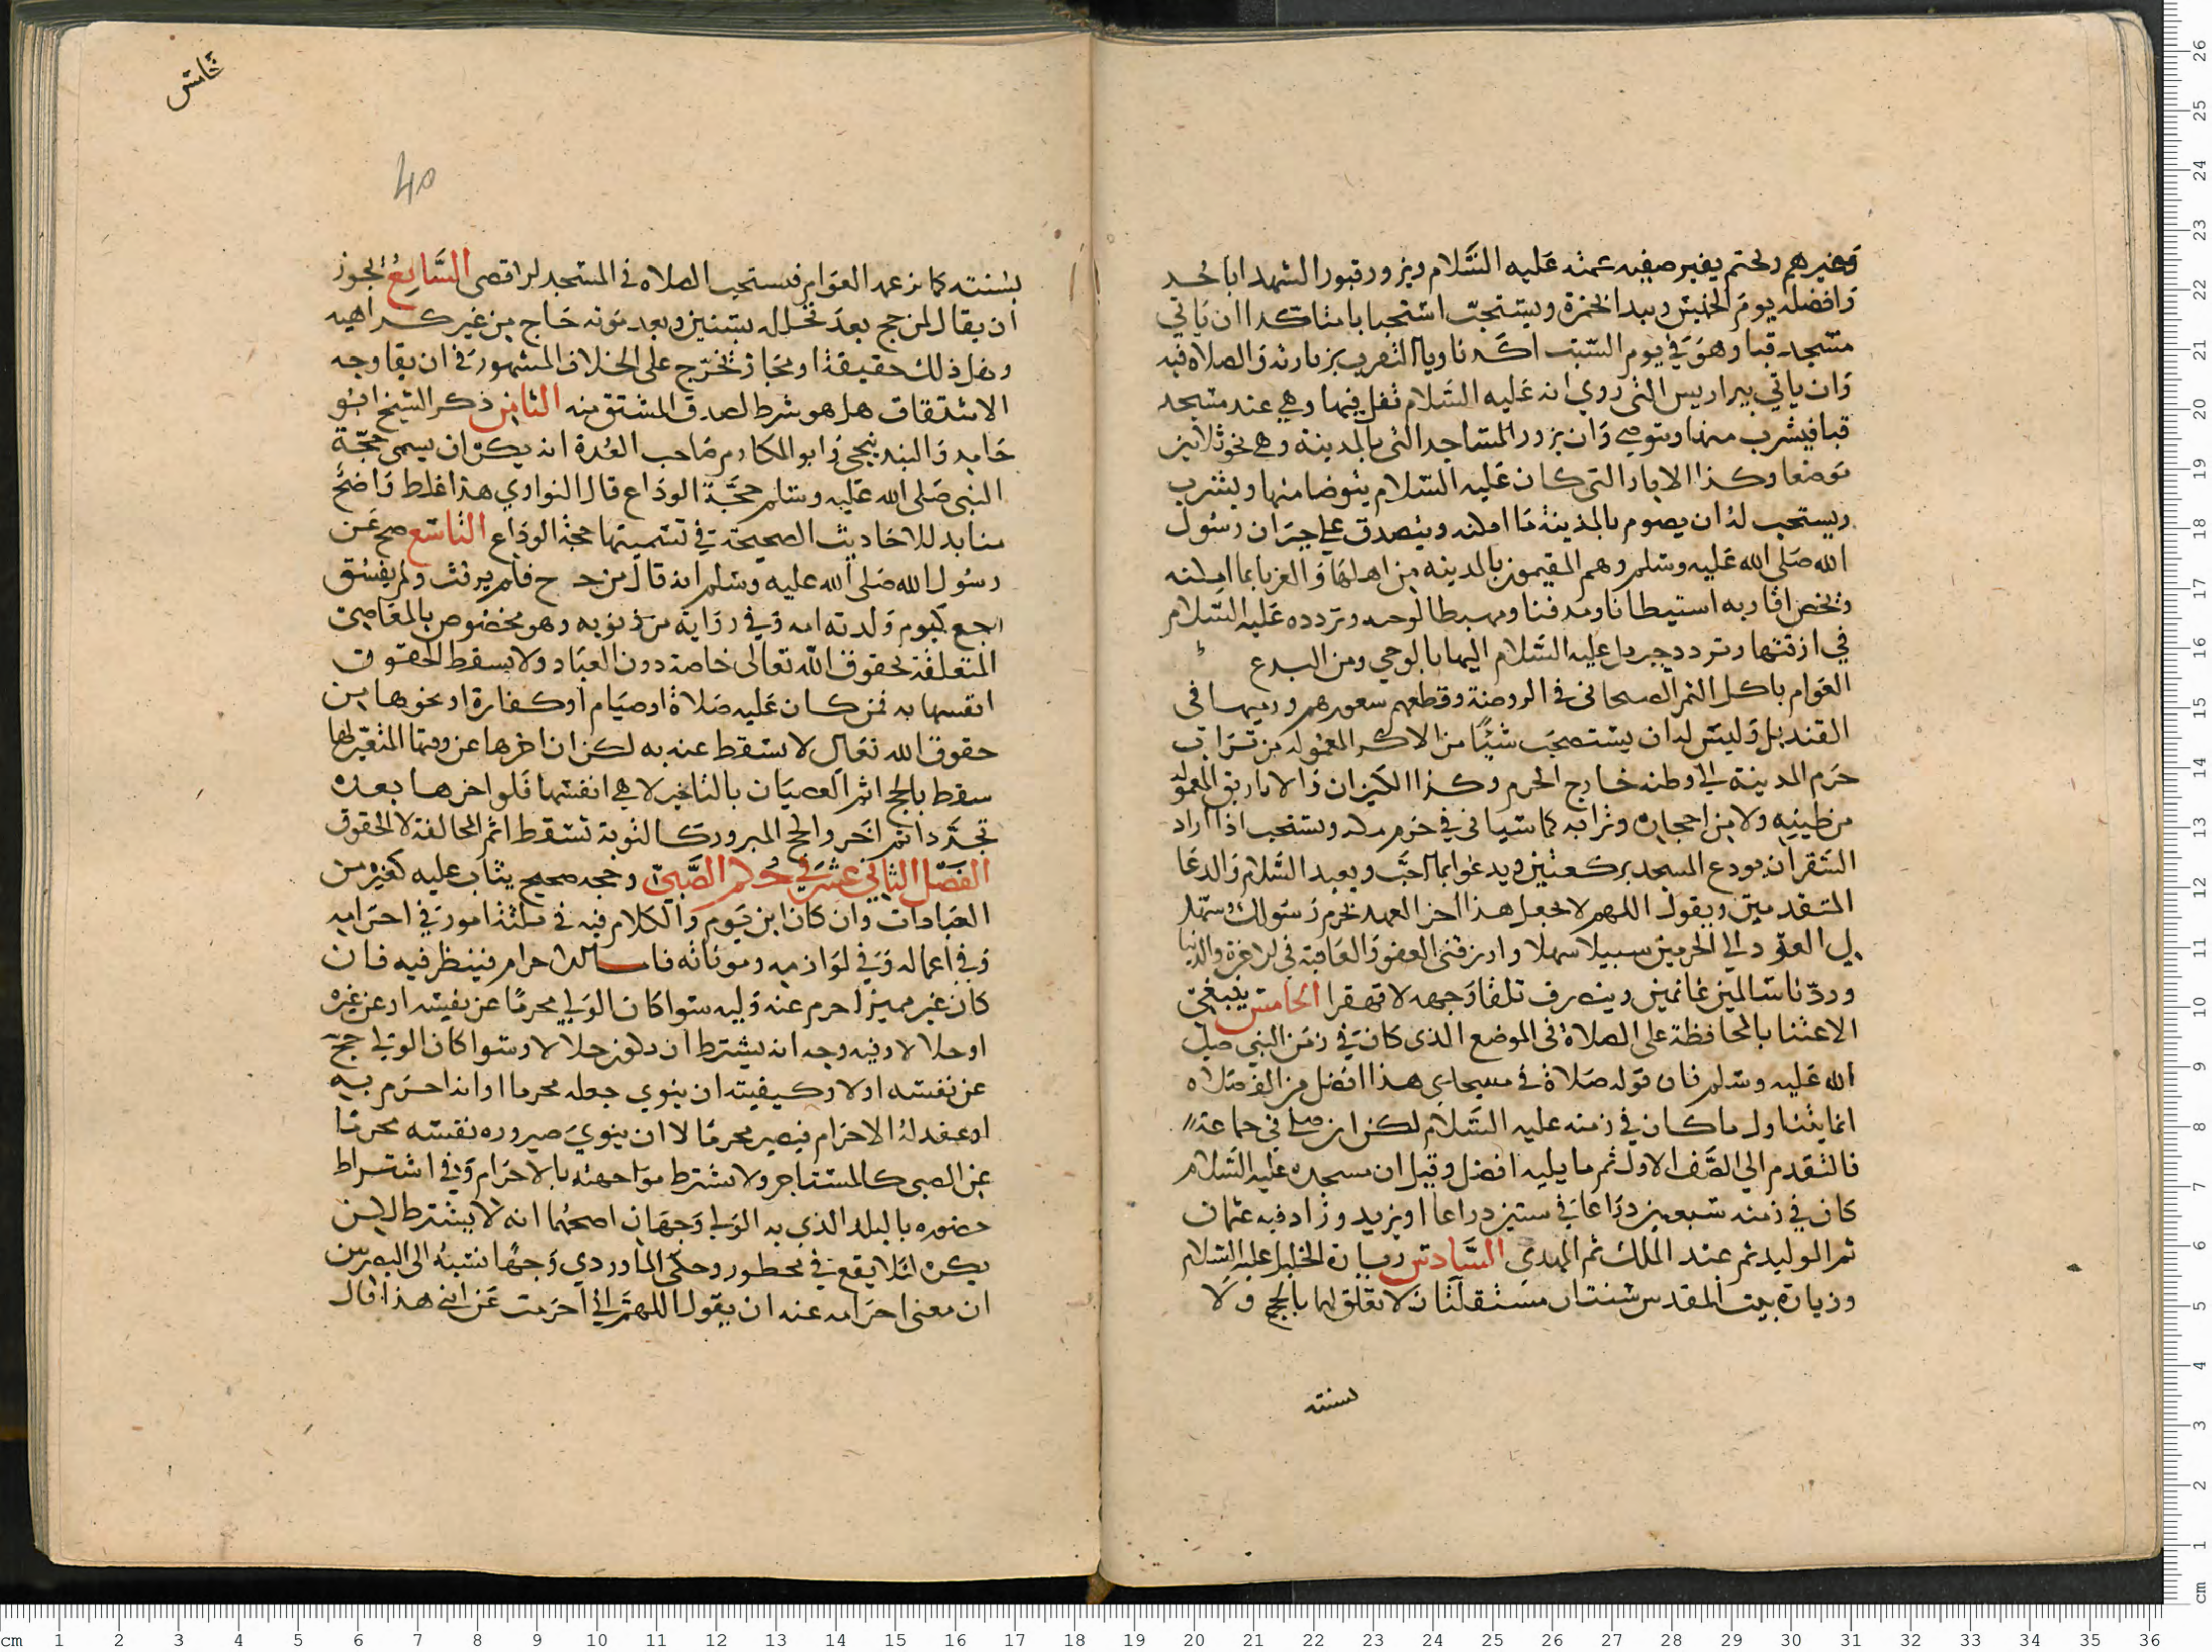 وغيرهم ويختم بقبر صفيه عمته عليه السَّلام ويزور قبور الشهدا باحُد
وافضله يوم الخميس ويبدا بحمزة ويستحبّ استحبابا متاكدا ان ياتي
مسجد قبا وهو في يوم السّبت اكد ناويا التقرب بزيارته والصلاه فيه
وان ياتي بير اريس التى روي انه عليه السّلام تفل فيها وهي عند مسجد
قبا فيشرب منها ويتوضى وان يزور المساجد التى بالمدينة وهي نحو ثلاثين
موضعا وكذا الابار التى كان عليه السّلام يتوضا منها ويشرب
ويستحب لهُ ان يصوم بالمدينة ما امكنه ويتصدق على جيران رسُول
الله صَلى الله عَليه وسَلم وهم المقيمون بالمدينه من اهلها والغربا بما امكنه
ويخص اقاربه استيطانا ومدفنا ومهبطا لوحيه وتردده عَليه السّلام
في ازقتها وتردد جبريل عليه السّلام اليها بالوحي ومن البدع
العَوام باكل التمر الصيحانى فى الروضة وقطعهم شعورهم ورميها فى
القنديل وليسَ له ان يستصحَب شيئًا من الاكر المعموله من تراب
حَرم المدينة الى وطنه خارج الحرم وكذا الكيزان والاباريق المعموله
من طينه ولا من احجاره وترابه كما سياتى فى حرم مكه ويستحب اذا اراد
السّفر ان يودع المسجد بركعتين ويدعوا بما احَبَّ ويعيد السّلام والدعا
المتقدمين ويقول اللهم لا تجعل هذا اخر العهد بحرم رَسُولك وسهّل
لى العَود الى الحرمين سبيلا سهلا وارزقنى العفو والعَافية في الاخرة والدنيا
وردّنا سَالمين غانمين وينصرف تلقا وَجهه لا قهقرا الخامسُ ينبغي
الاعتنا بالمحافظة على الصلاة فى الموضع الذى كان في زمن النبي صلى
الله عَليه وسَلم فان قوله صَلاة في مسجدي هذا افضل من الف صَلاه
انما يتناول ما كان في زمنه عليه السّلام لكن ان صلى في جماعة
فالتقدم الى الصَّف الاول ثم ما يليه افضل وقيل ان مسجده عليه السّلام
كان في زمنه سَبعين ذراعَا في ستين ذراعا او يزيد وزاد فيه عثمان
ثم الوليد ثم عند الملك ثم المهدى السَّادسُ زيارة الخليل عليه السّلام
وزيارة بيت المقدس سُنتان مستقلتان لا تعلّق لهما بالحج ولا
لسنته
خامس
40
بسُنته كما زعمه العوَام فيستحب الصلاه في المسجد الاقصى السَّابعُ يجوز
ان يقال لمن حج بعدَ تحلله بسنين وبعد موته حَاج من غير كراهيه
وهل ذلك حقيقة او مجَاز تخرّج على الخلاف المشهور في ان بقا وجه
الاشتقاق هل هو شرط لصدق المشتق منه الثامِن ذكر الشيخ ابُو
حَامد والبندنيجى وابو المكارم صَاحب العُدة انه يكره ان يسمى حجّة
النبي صَلى الله عَليه وسلم حجَّة الودَاع قال النواوي هذا غلط وَاضحٌ
منابد للاحَاديث الصحيحة في تسميتها حجة الودَاع التاسع صح عَن
رسُول الله صَلى الله عليه وسَلم انه قال من حج فلم يرفث ولم يفسُق
رجع كيوم وَلدته امه وفي روَاية من ذنوبه وهو مخصُوص بالمعَاصي
المتعلقة بحقوق الله تعالى خاصة دون العبَاد ولا يسقط الحقوق
انفسها به فمن كان عَليه صَلاة او صيَام او كفارة او نحوها من
حقوق الله تعالى لا تسقط عنه به لكن ان اخرها عن وقتها المتغير لها
سقط بالحج اثم العصيَان بالتاخير لا هى انفسها فلو اخرها بعده
تجدَّد اثم اخر والحج المبرور كالتوبة تسقط اثم المخالفة لا الحقوق
الفصْل الثاني عشر في حُكم الصَّبيّ وحجه صحيح يثاب عليه كغيره من
العبَادات وان كان ابن يَوم والكلام فيه في ثلثة امور في احرَامه
وفي اعماله وفي لوَازمه ومؤناته فاما الاحرام فينظر فيه فان
كان غير مميز احرم عنه وَليه سَوا كان الوَلي محرمًا عن نفسه او عن غيره
او حلالا وفيه وجه انه يشترط ان يكون حلالا وسَوا كان الولى حجّ
عن نفسه اولا وكيفيته ان ينوي جعله محرما او انه احرَم به
او عقد لهُ الاحرَام فيصير محرمًا لا ان ينوي صيروره نفسه محرمًا
عن الصبى كالمستاجر ولا يشترط موَاجهته بالاحرَام وفي اشتراط
حضوره بالبلد الذي به الولى وَجهَان اصحهُما انه لا يشترط لكن
يكره لئلا يقع في محظور وحكى الماوردي وَجهًا نسَبهُ الى البصريين
ان معنى احرَامه عنه ان يقول اللهمَّ اني احرَمت عَن ابنى هذا قال